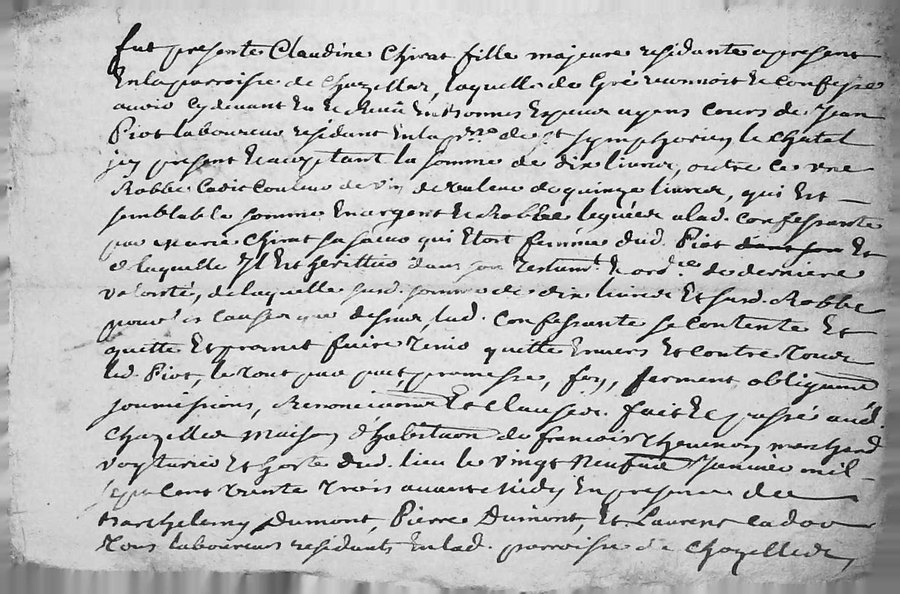 fut presente Claudine Chirat fille majeure residante apresent
Enla parroisse de Chazelles, laquelle de Gré reconnoit Et confesse
avoir Cydevant Eu Et Reçu En bonnes Especes ayans cours de Jean
Piot laboureur residant Enla p.rre de St Symphorien le Chatel
jcy present Et acceptant la somme de dix livres, outre ce une
Robbe Cadis Couleur de vin de valeur de quinze livres, qui Est
semblable somme En argent Et Robbe leguée a lad. Confessante
par Marie Chirat sa sœur qui Etoit femme dud. Piot Et
de laquelle Il Est herittier dans son Testamt. Et ord.ce de derniere
volonté, de laquelle susd. somme de dix livres Et susd. Robbe
pour les causes que dessus, lad. Confessante se contente Et
quitte Et promet faire Tenir quitte Envers Et contre Tous
led. Piot, le Tout par pact, promesse, foy, serment, obligaõns
soumissions, Renonciaõns Et Clauses. fait Et passé aud.
Chazelles Maison d'habitaõn de francois Thevenon marchand
voyturier Et hoste dud. lieu le vingt Neufvie Janvier mil
sept Cent Trente Trois avant Midy En presence de
Barthelemy Dumont, Pierre Dumont, Et Laurent Cadou
Tous laboureurs residants Enlad. parroisse de Chazelles,